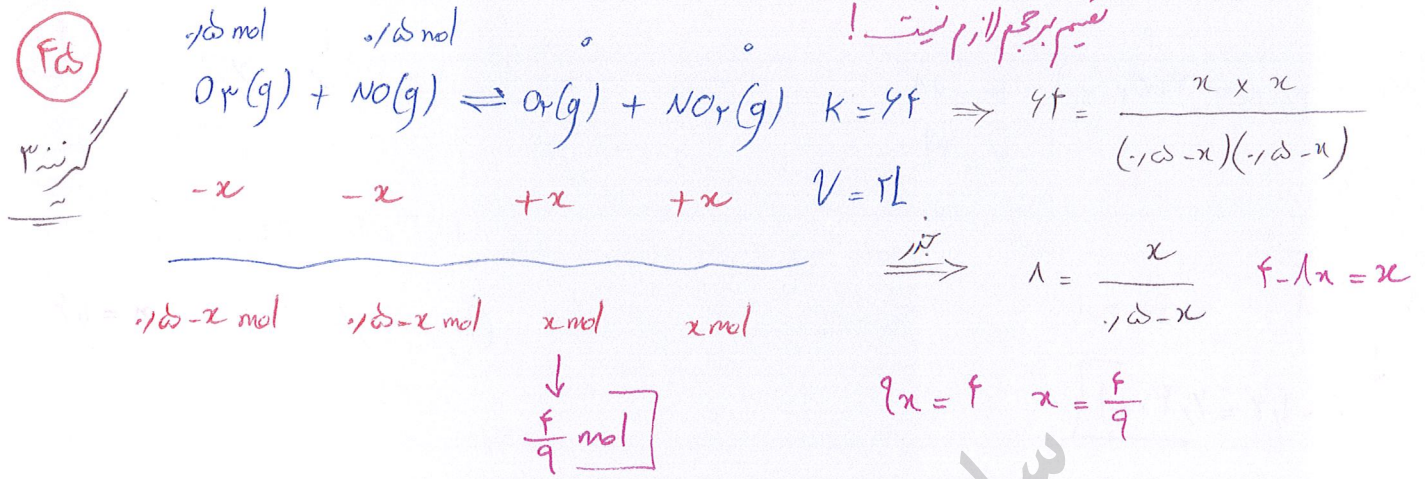 ۴۵
گزینه ۳
۰/۵ mol ۰/۵ mol ۰ ۰
تقسیم بر حجم لازم نیست !
O۳(g) + NO(g) ⇌ O۲(g) + NO۲(g) K = ۶۴ ⇒ ۶۴ = x × x / (۰/۵ - x)(۰/۵ - x)
-x -x +x +x V = ۲L
جذر ⇒ ۸ = x / ۰/۵ - x ۴ - ۸x = x
۰/۵ - x mol ۰/۵ - x mol x mol x mol
↓
۴/۹ mol
۹x = ۴ x = ۴/۹